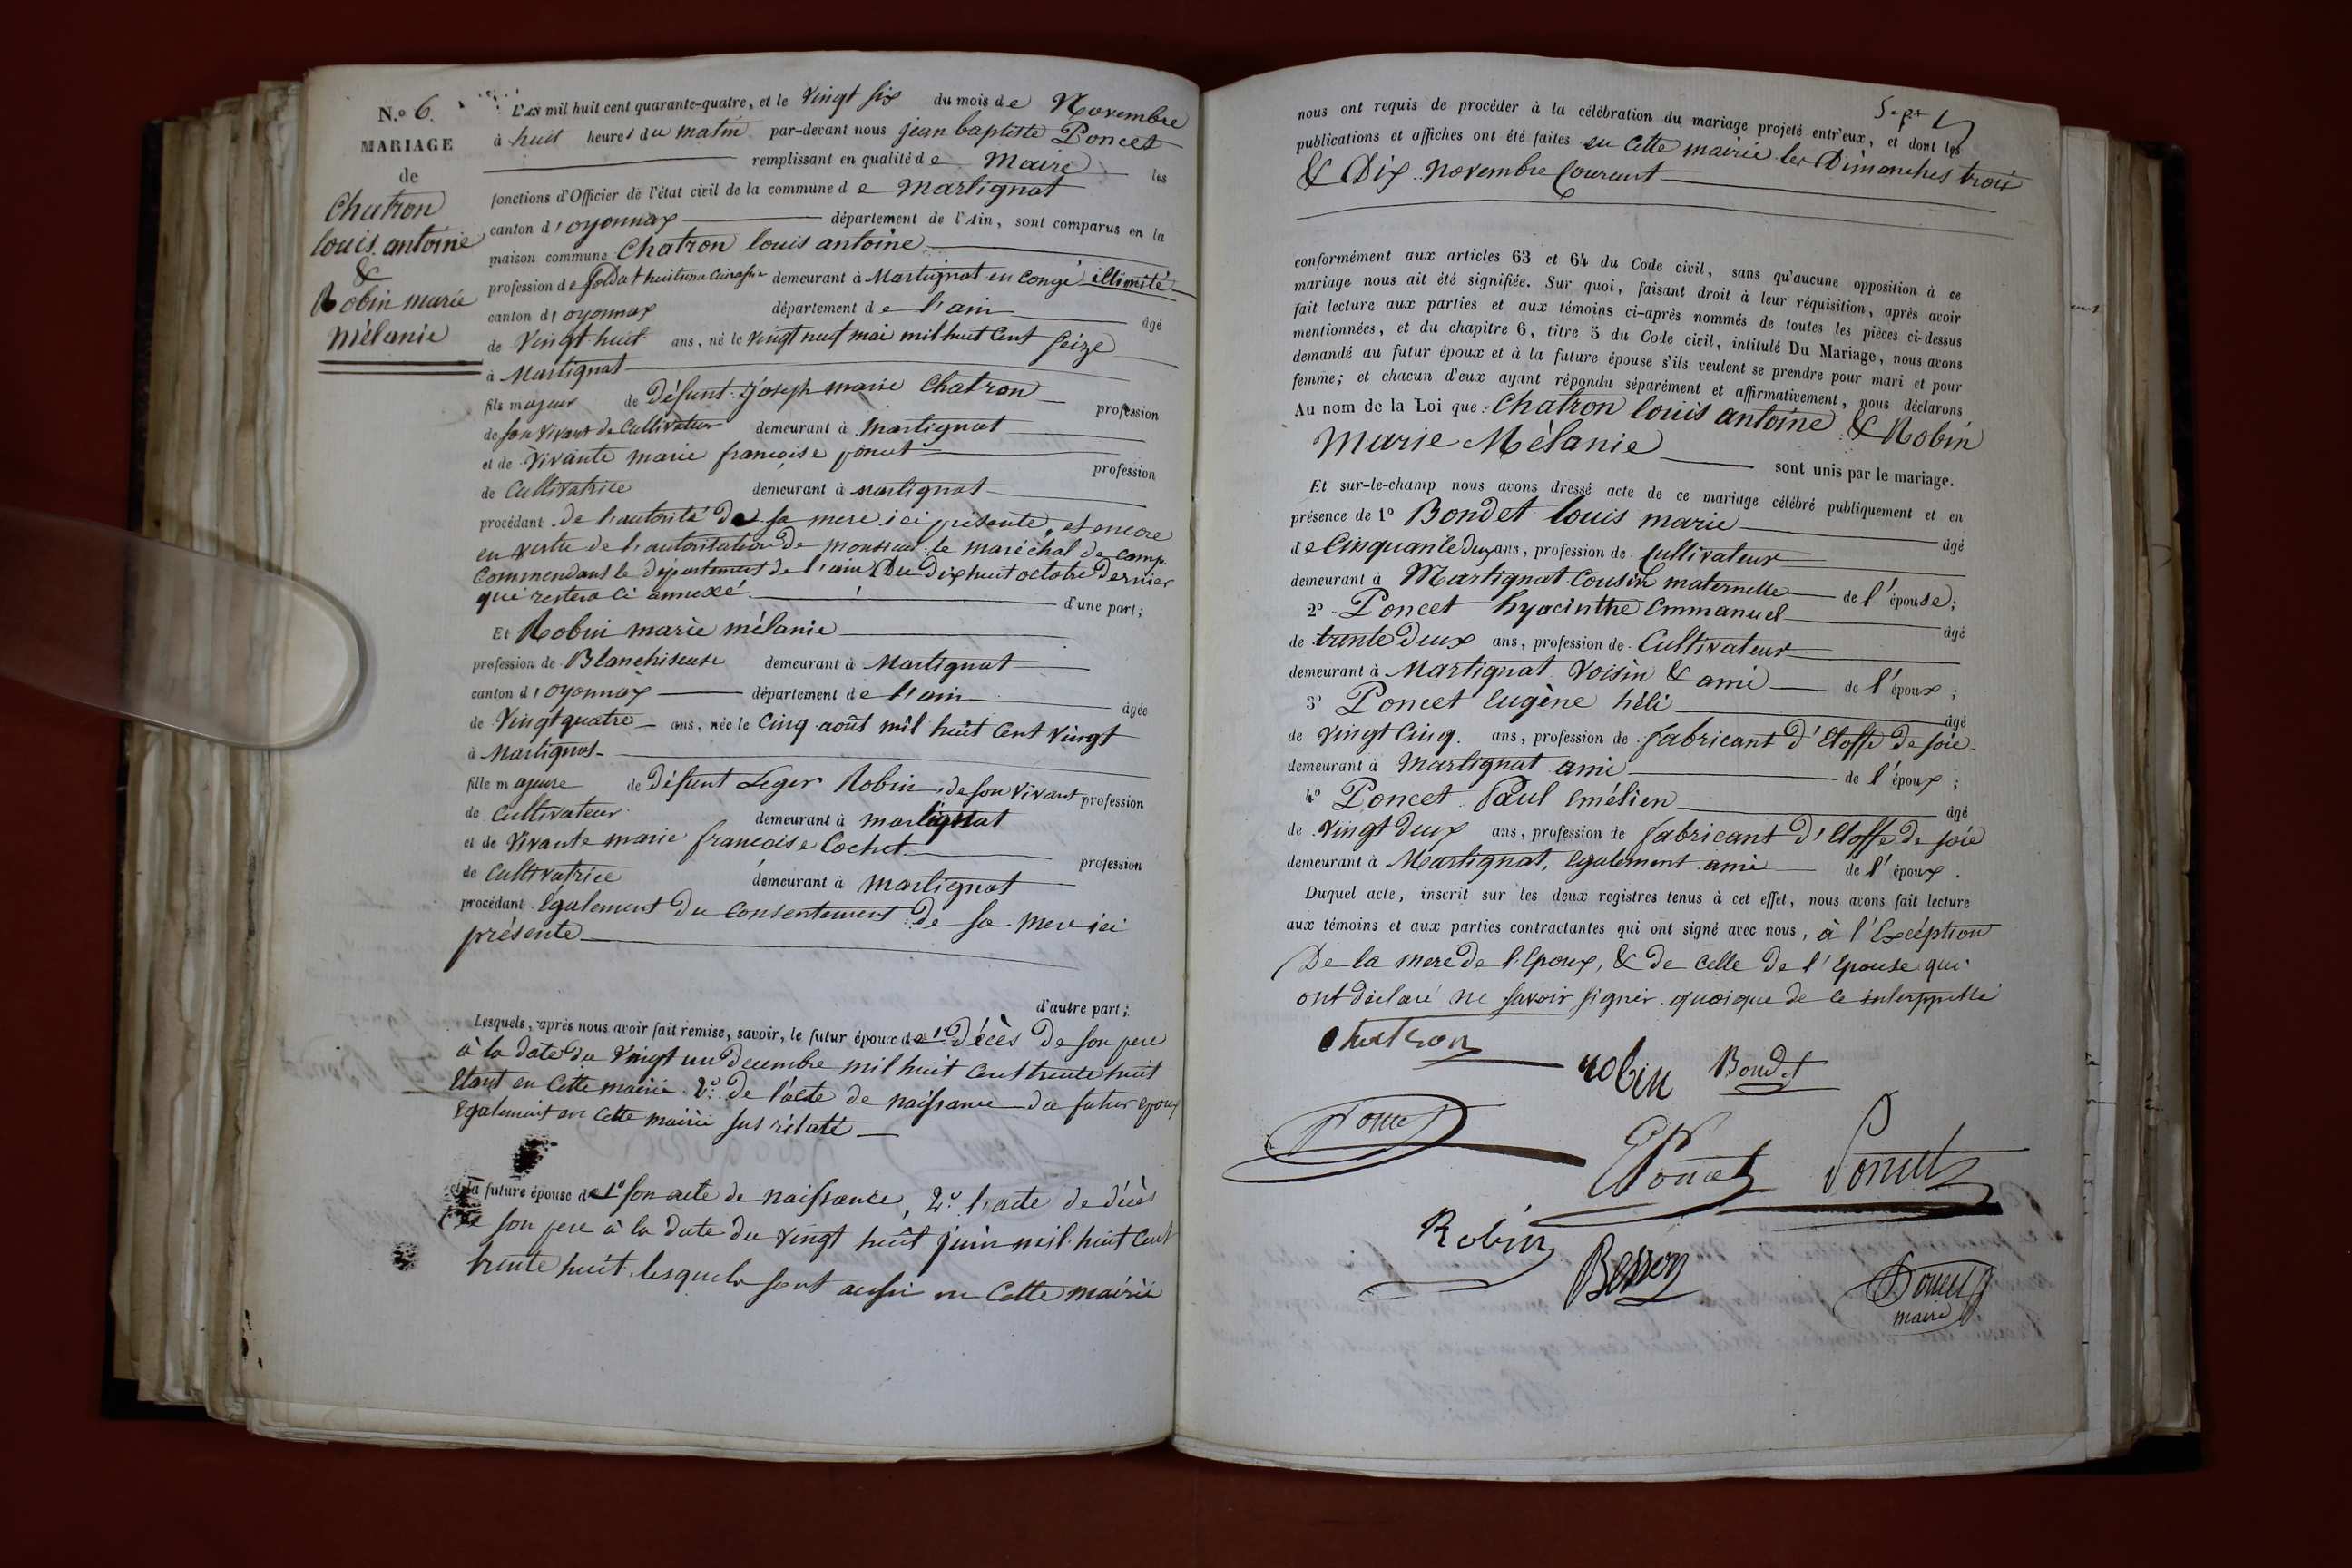 N.º 6.
MARIAGE
de
Chatron
louis antoine
&
Robin marie
mélanie
L'an mil huit cent quarante-quatre, et le vingt six du mois de Novembre
à huit heures du matin par-devant nous jean baptiste Poncet
remplissant en qualité de Maire les
fonctions d'Officier de l'état civil de la commune de Martignat
canton d'oyonnax département de l'Ain, sont comparus en la
maison commune Chatron louis antoine
profession de soldat demeurant à Martignat en congé illimité
canton d'oyonnax département de l'ain âgé
de vingt huit ans, né le vingt neuf mai mil huit cent seize
à Martignat
fils majeur de défunt joseph marie Chatron profession
de son vivant de Cultivateur demeurant à Martignat
et de vivante marie françoise poncet profession
de Cultivatrice demeurant à martignat
procédant de l'autorité de sa mere ici présente, et encore
en vertu de l'autorisation de monsieur le maréchal de camp
Commendant le département de l'ain Du dix huit octobre dernier
qui restera ci annexé. d'une part;
Et Robin marie mélanie
profession de Blanchiseuse demeurant à Martignat
canton d'oyonnax département de l'ain âgée
de vingt quatre ans, née le cinq août mil huit cent vingt
à Martignat
fille majeure de défunt Leger Robin, de son vivant profession
de Cultivateur demeurant à martignat
et de vivante marie françoise Cochet profession
de Cultivatrice demeurant à martignat
procédant également du consentement de sa mere ici
présente
d'autre part;
Lesquels, après nous avoir fait remise, savoir, le futur époux de 1º décès de son pere
à la date du vingt un decembre mil huit cent trente huit
étant en cette mairie 2º. de l'acte de naissance du futur époux
également en cette mairie sus rélaté
et la future épouse de 1º son acte de naissance, 2º. l'acte de décès
de son pere à la date du vingt huit juin mil huit cent
trente huit, lesquels sont aussi en cette mairie
nous ont requis de procéder à la célébration du mariage projeté entr'eux, et dont les
publications et affiches ont été faites en cette mairie les Dimanches trois
& Dix novembre courant
conformément aux articles 63 et 64 du Code civil, sans qu'aucune opposition à ce
mariage nous ait été signifiée. Sur quoi, faisant droit à leur réquisition, après avoir
fait lecture aux parties et aux témoins ci-après nommés de toutes les pièces ci-dessus
mentionnées, et du chapitre 6, titre 5 du Code civil, intitulé Du Mariage, nous avons
demandé au futur époux et à la future épouse s'ils veulent se prendre pour mari et pour
femme; et chacun d'eux ayant répondu séparément et affirmativement, nous déclarons
Au nom de la Loi que Chatron louis antoine & Robin
Marie Mélanie sont unis par le mariage.
Et sur-le-champ nous avons dressé acte de ce mariage célébré publiquement et en
présence de 1º Bondet louis marie âgé
de cinquante deux ans, profession de Cultivateur
demeurant à Martignat Cousin maternelle de l'épouse;
2º Poncet hyacinthe Emmanuel âgé
de trente deux ans, profession de Cultivateur
demeurant à Martignat voisin & ami de l'époux;
3º Poncet Eugène héli âgé
de vingt cinq ans, profession de fabricant d'étoffe de soie
demeurant à Martignat ami de l'époux;
4º Poncet Paul émélien âgé
de vingt deux ans, profession de fabricant d'étoffe de soie
demeurant à Martignat, également ami de l'époux.
Duquel acte, inscrit sur les deux registres tenus à cet effet, nous avons fait lecture
aux témoins et aux parties contractantes qui ont signé avec nous, à l'Exception
De la mere de l'époux, & de celle de l'épouse qui
ont déclaré ne savoir signer quoique de ce interppellé
Chatron
robin Bondet
Poncet
Poncet Poncet
Robin
Besson
Poncet
maire